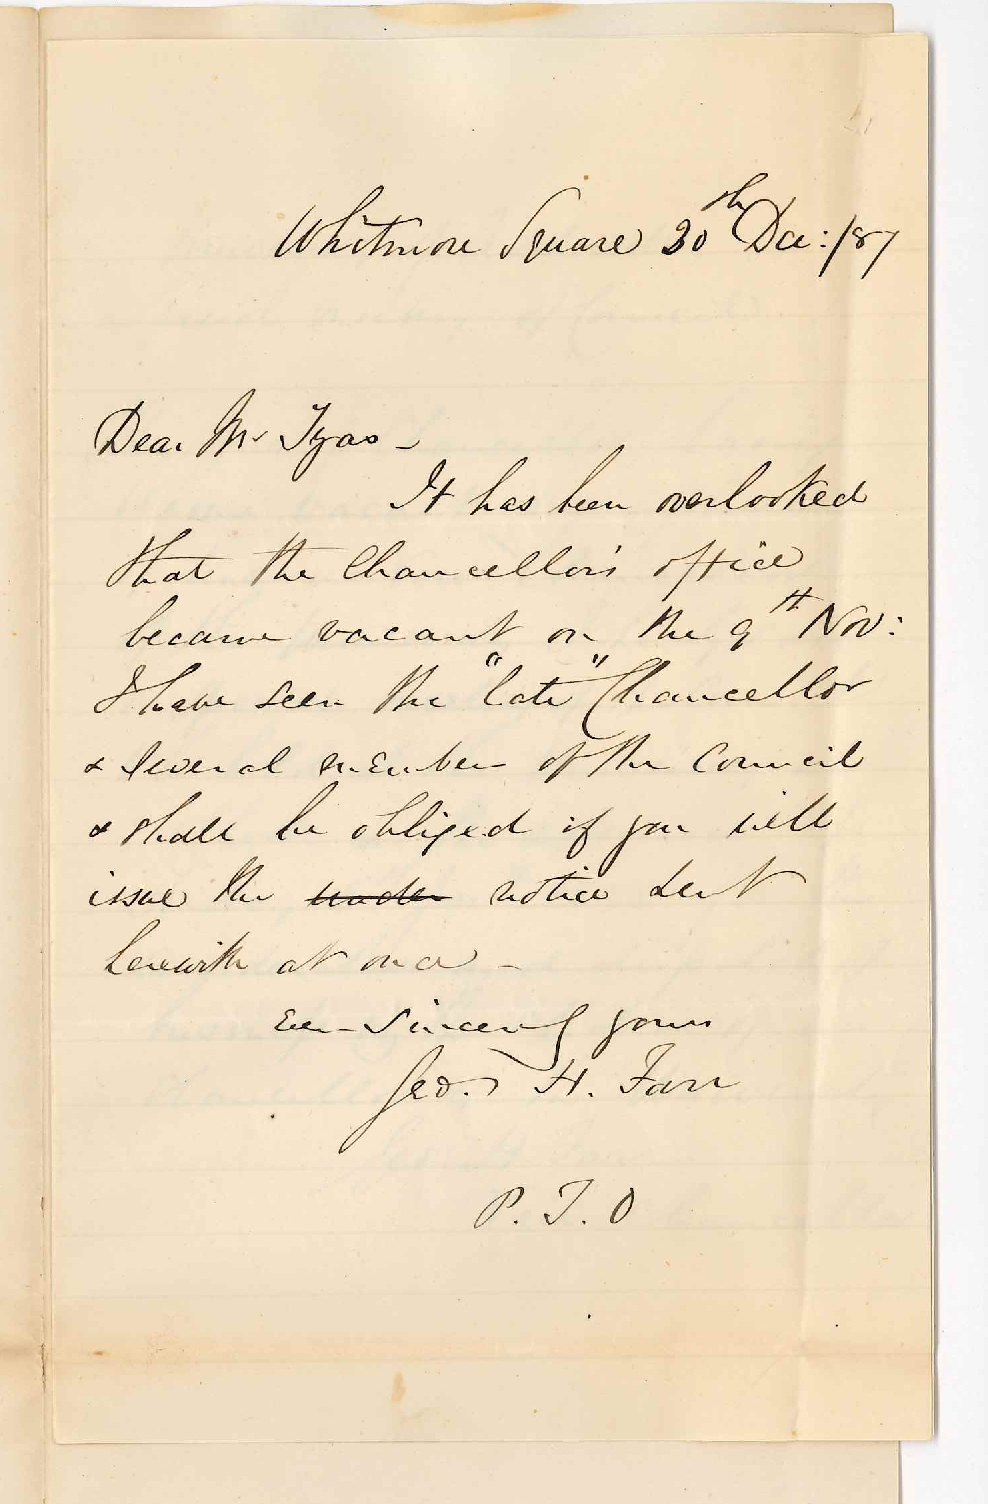 Whitmore Square 30th Dec: /87
Dear Mr Tyas -
It has been overlooked
that the Chancellor's office
became vacant on the 9th Nov:
I have seen the "late" Chancellor
& several members of the Council
& shall be obliged if you will
issue the under notice sent
herewith at once -
Ever Sincerely yours
Geo. H. Farr
P.T.O